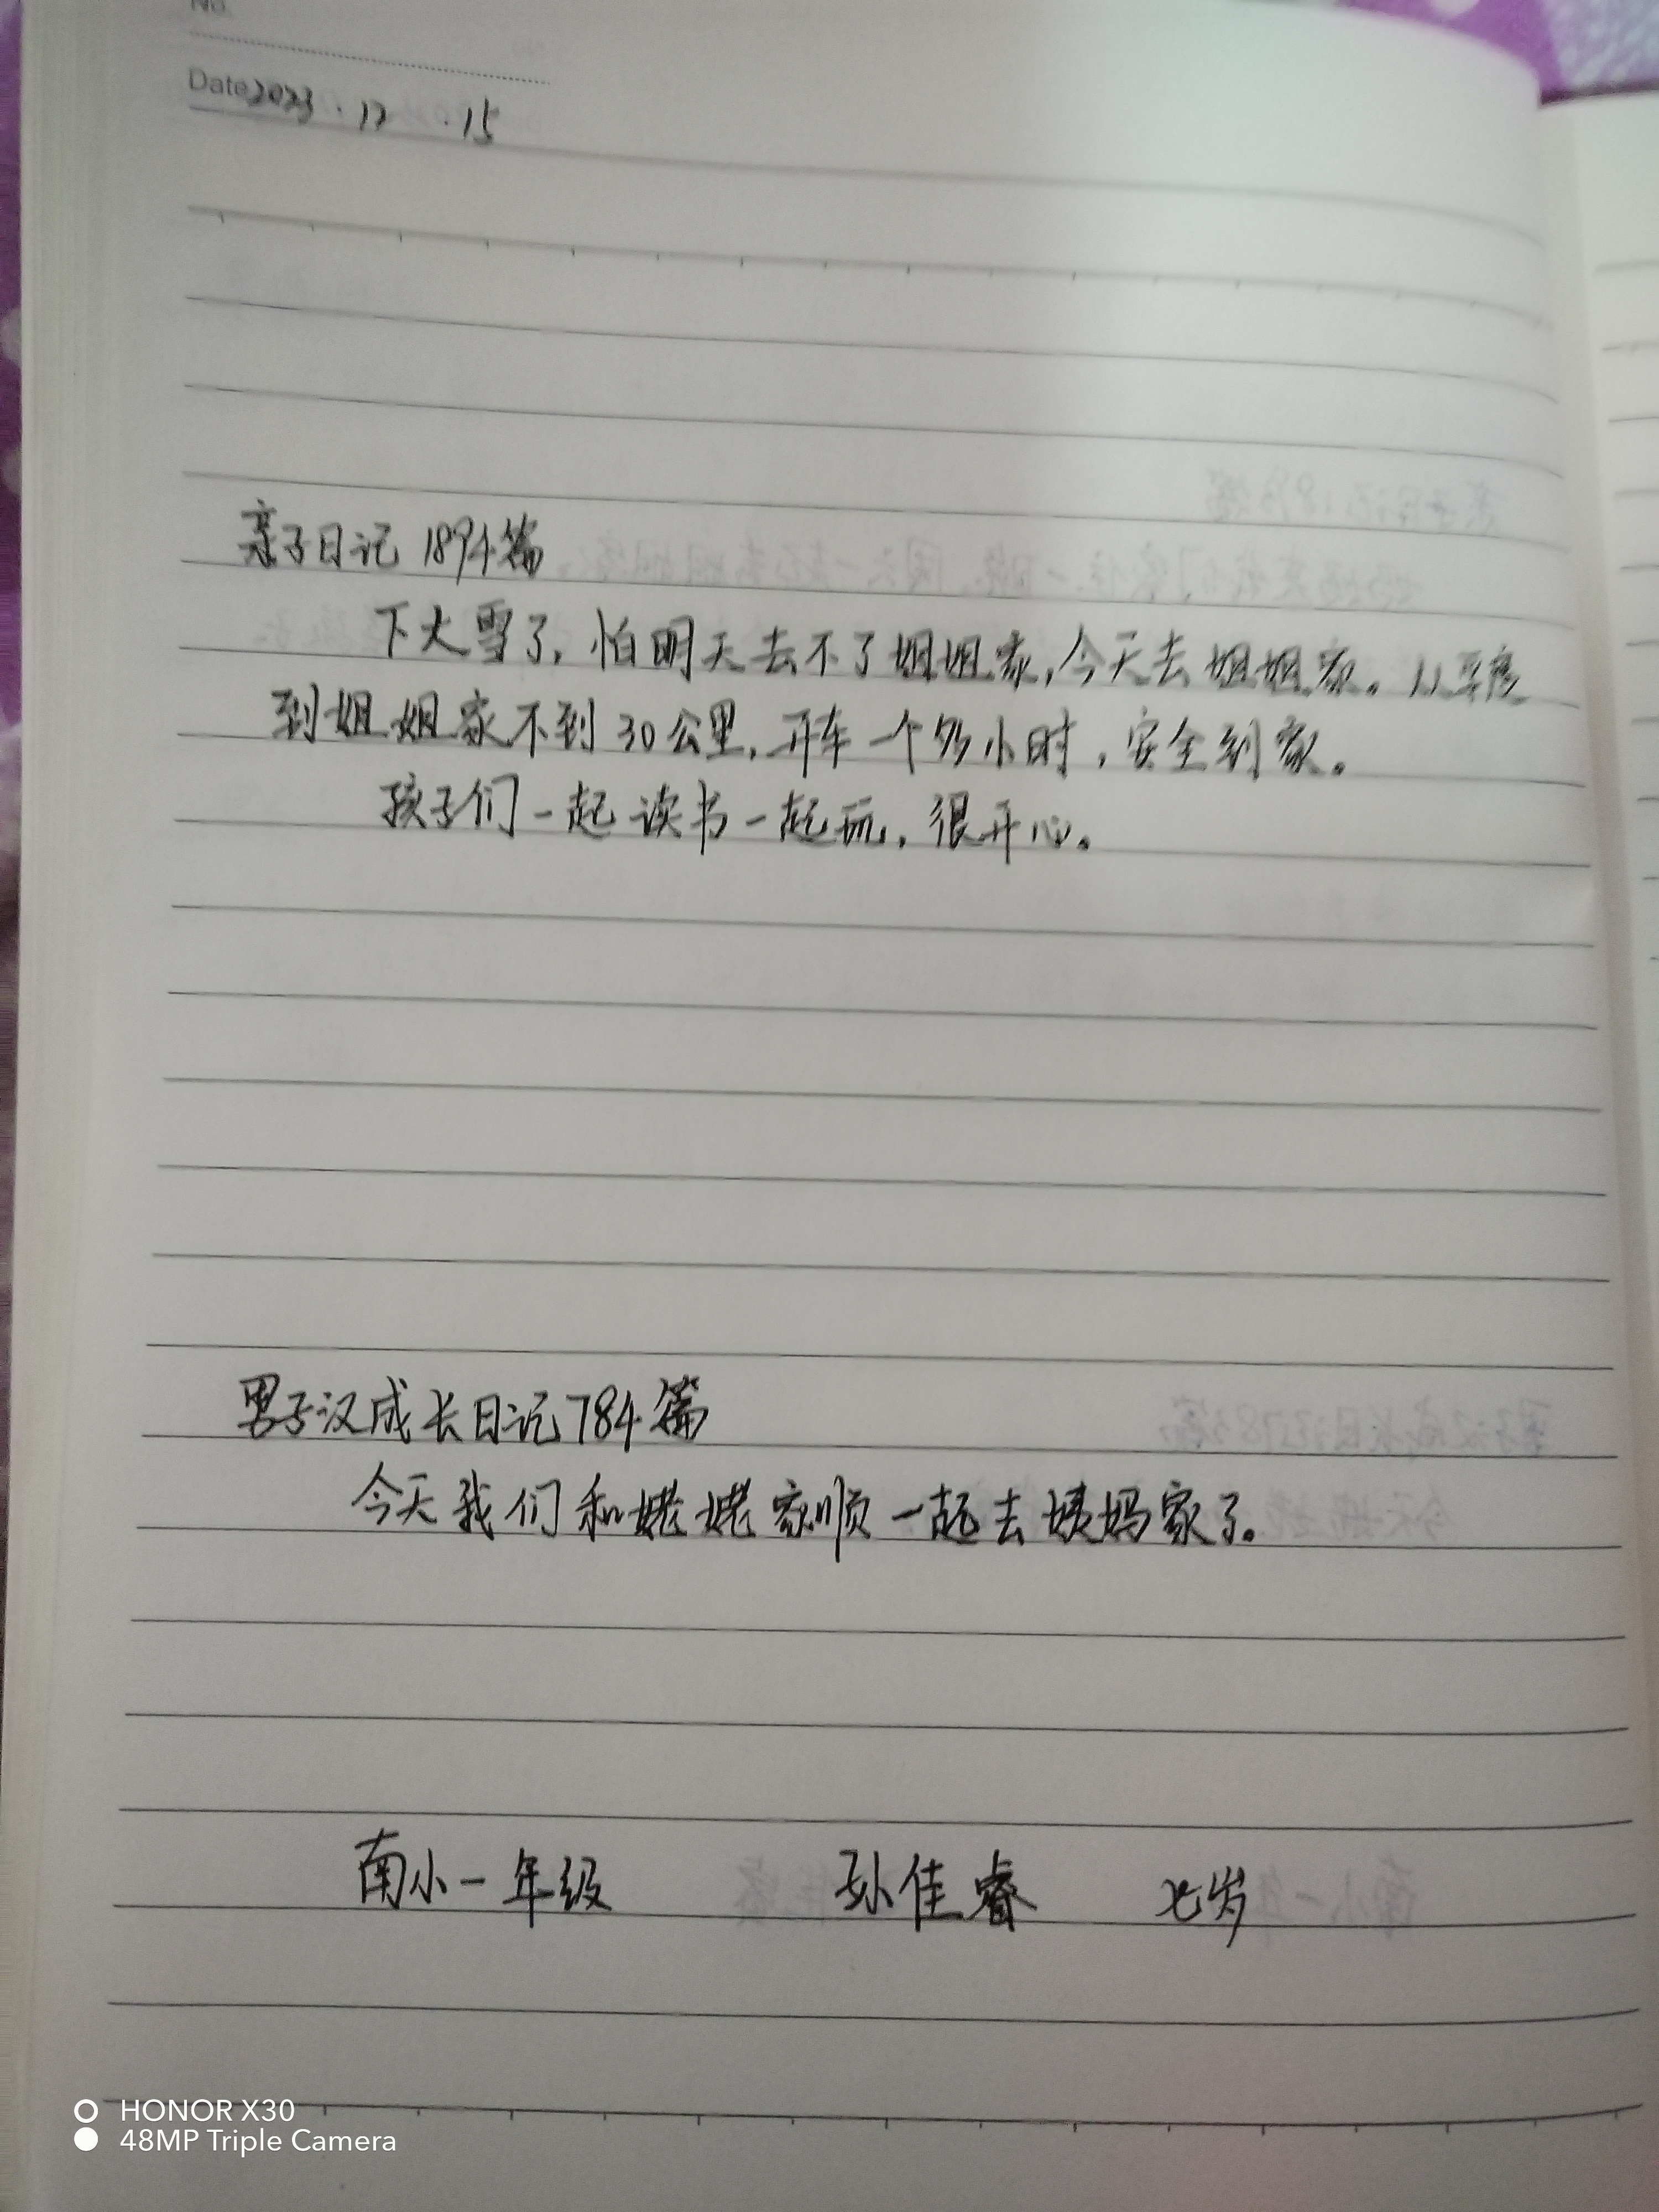 No.
Date 2023.12.15
亲子日记1894篇
下大雪了,怕明天去不了姐姐家,今天去姐姐家。从
到姐姐家不到30公里,开车一个多小时,安全到家。
孩子们一起读书一起玩,很开心。
男子汉成长日记784篇
今天我们和姥姥家顺一起去姨妈家了。
南小一年级 孙佳睿 七岁
HONOR X30
48MP Triple Camera